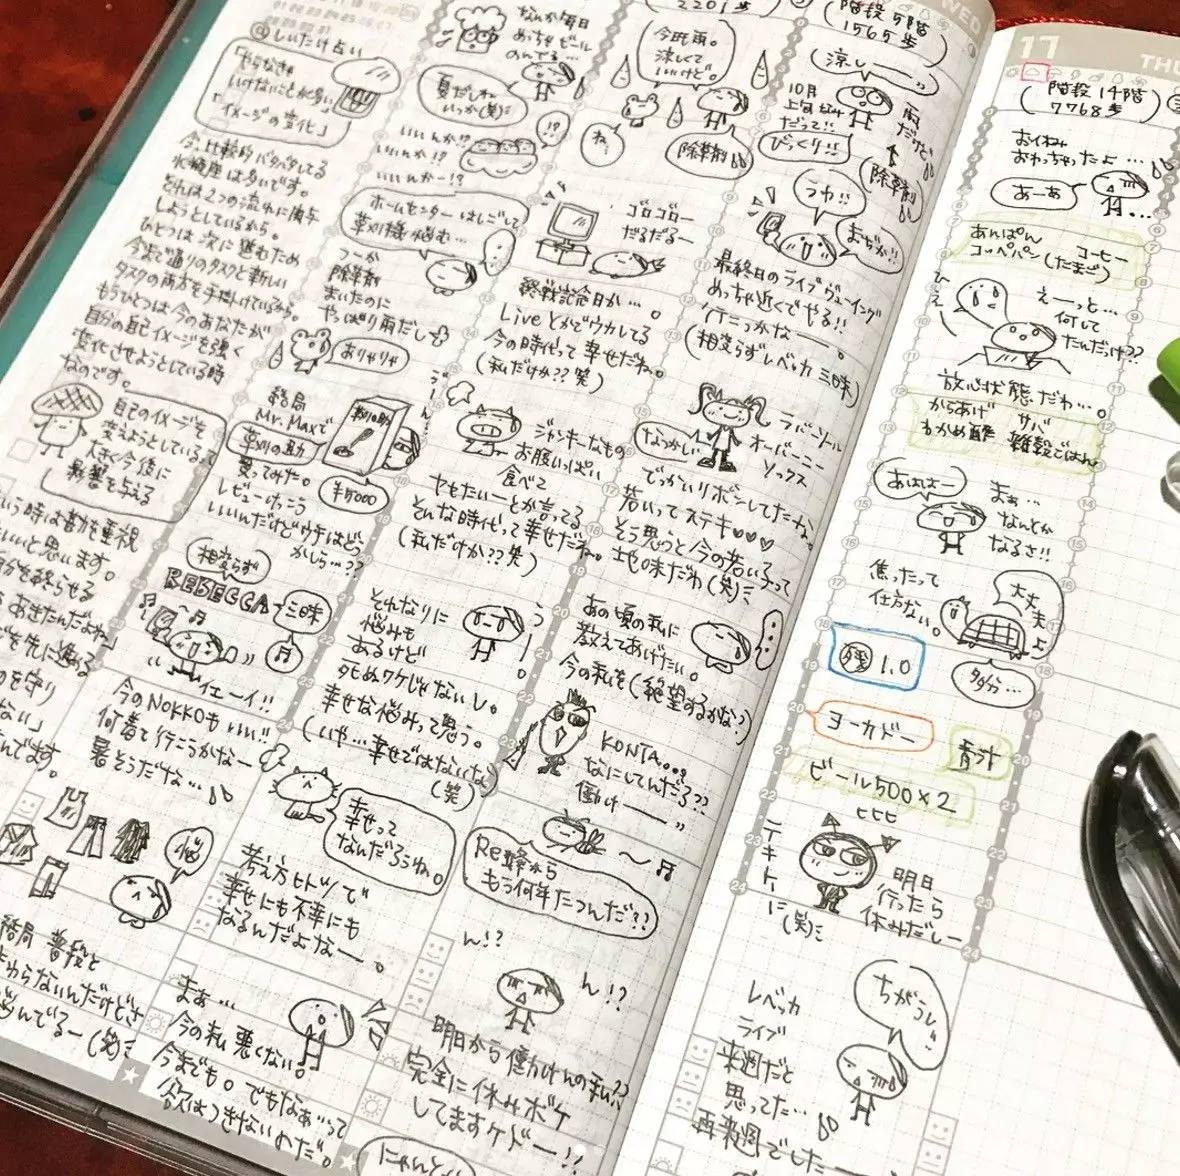 しいたけ占い
「やらなきゃ
いけないことが多い」
「イメージの変化」
今、比較的バタバタしてる
水瓶座は多いです。
それは2つの流れに関与
しようとしているから。
ひとつは次に進むため
今まで通りのタスクと新しい
タスクの両方を手掛けているから。
もうひとつは今のあなたが
自分の自己イメージを強く
変化させようとしている時
なのです。
自己のイメージを
変えようとしている
大きく今後に
影響を与える
いう時は勘を重視
いいと思います。
を終らせる
あきたんだよね
を先に進める
を守り
ない」
んでます。
悩
結局 普段と
変わらないんだけどさ
悩んでるー(笑)
なんか毎日
めっちゃビール
のんでる…
夏だしね
いっか(笑)
!?
いいんか!?
いいんか!?
いいんかー!?
ホームセンターはしごして
草刈機悩む…
つーか
除草剤
まいたのに
やっぱり雨だし
ありゃりゃ
結局
Mr.Maxで
草刈の助
買ってみた。
草刈の助
¥5000
レビューけっこう
いいんだけどウチはどう
かしら…??
相変らず
REBECCA三昧
イエーイ!!
今のNOKKOもいい!!
何着て行こうかなー
暑そうだな…
幸せって
なんだろうね。
考え方ヒトツで
幸せにも不幸にも
なるんだよなー。
まぁ…
今の私 悪くない。
今までも。でもなぁ…って
欲はつきないわだ。
2201歩
今日も雨。
涼しくて
いいけど。
ね
除草剤
ゴロゴロー
だるだるー
終戦記念日か…。
Liveとかでウカレてる
今の時代って幸せだね。
(私だけか??笑)
ジャンキーなもの
お腹いっぱい
食べて
ヤセたいーとか言ってる
そんな時代って幸せだね。
(私だけか??笑)
それなりに
悩みも
あるけど
死ぬワケじゃないし。
幸せな悩みって思う。
(いや…幸せではないな)
(笑)
うーん。
Re蜂から
もう何年たつんだ??
ん!?
ん!?
明日から働けんの私??
完全に休みボケ
してますケドー!!
階段5階
1565歩
涼しー
10月
上旬なみ
だって!!
びっくり!!
雨
だけど
除草剤
うわ!!
まぢか!!
最終日のライブヴューイング
めっちゃ近くでやる!!
行こっかなー。
(相変らずレベッカ三昧)
なつかしい
ラバーソール
オーバーニー
ソックス
でっかいリボンしてたな。
若いってステキ♡♡♡
そう思うと今の若い子って
地味だわ(笑)
あの頃の私に
教えてあげたい。
今の私を(絶望するかな?)
KONTA…。
なにしてんだろ??
働けー
WED
17
THU
階段14階
7768歩
おイネム
おわっちゃったよ…
あーあ
あんぱん
コッペパン(たまご) コーヒー
ひえー
えーっと…
何して
たんだっけ??
放心状態だわ…。
からあげ サバ
わかめ酢 雑穀ごはん
あはは
まぁ…
なんとか
なるさ!!
焦ったって
仕方ない。
大丈夫よ
多分…
残 1.0
ヨーカドー
青汁
ビール500×2
ヒヒヒ
テキトーに(笑)
明日
行ったら
休みだしー
レベッカ
ライブ
来週だと
思ってた…
再来週でしたー
ちがうし